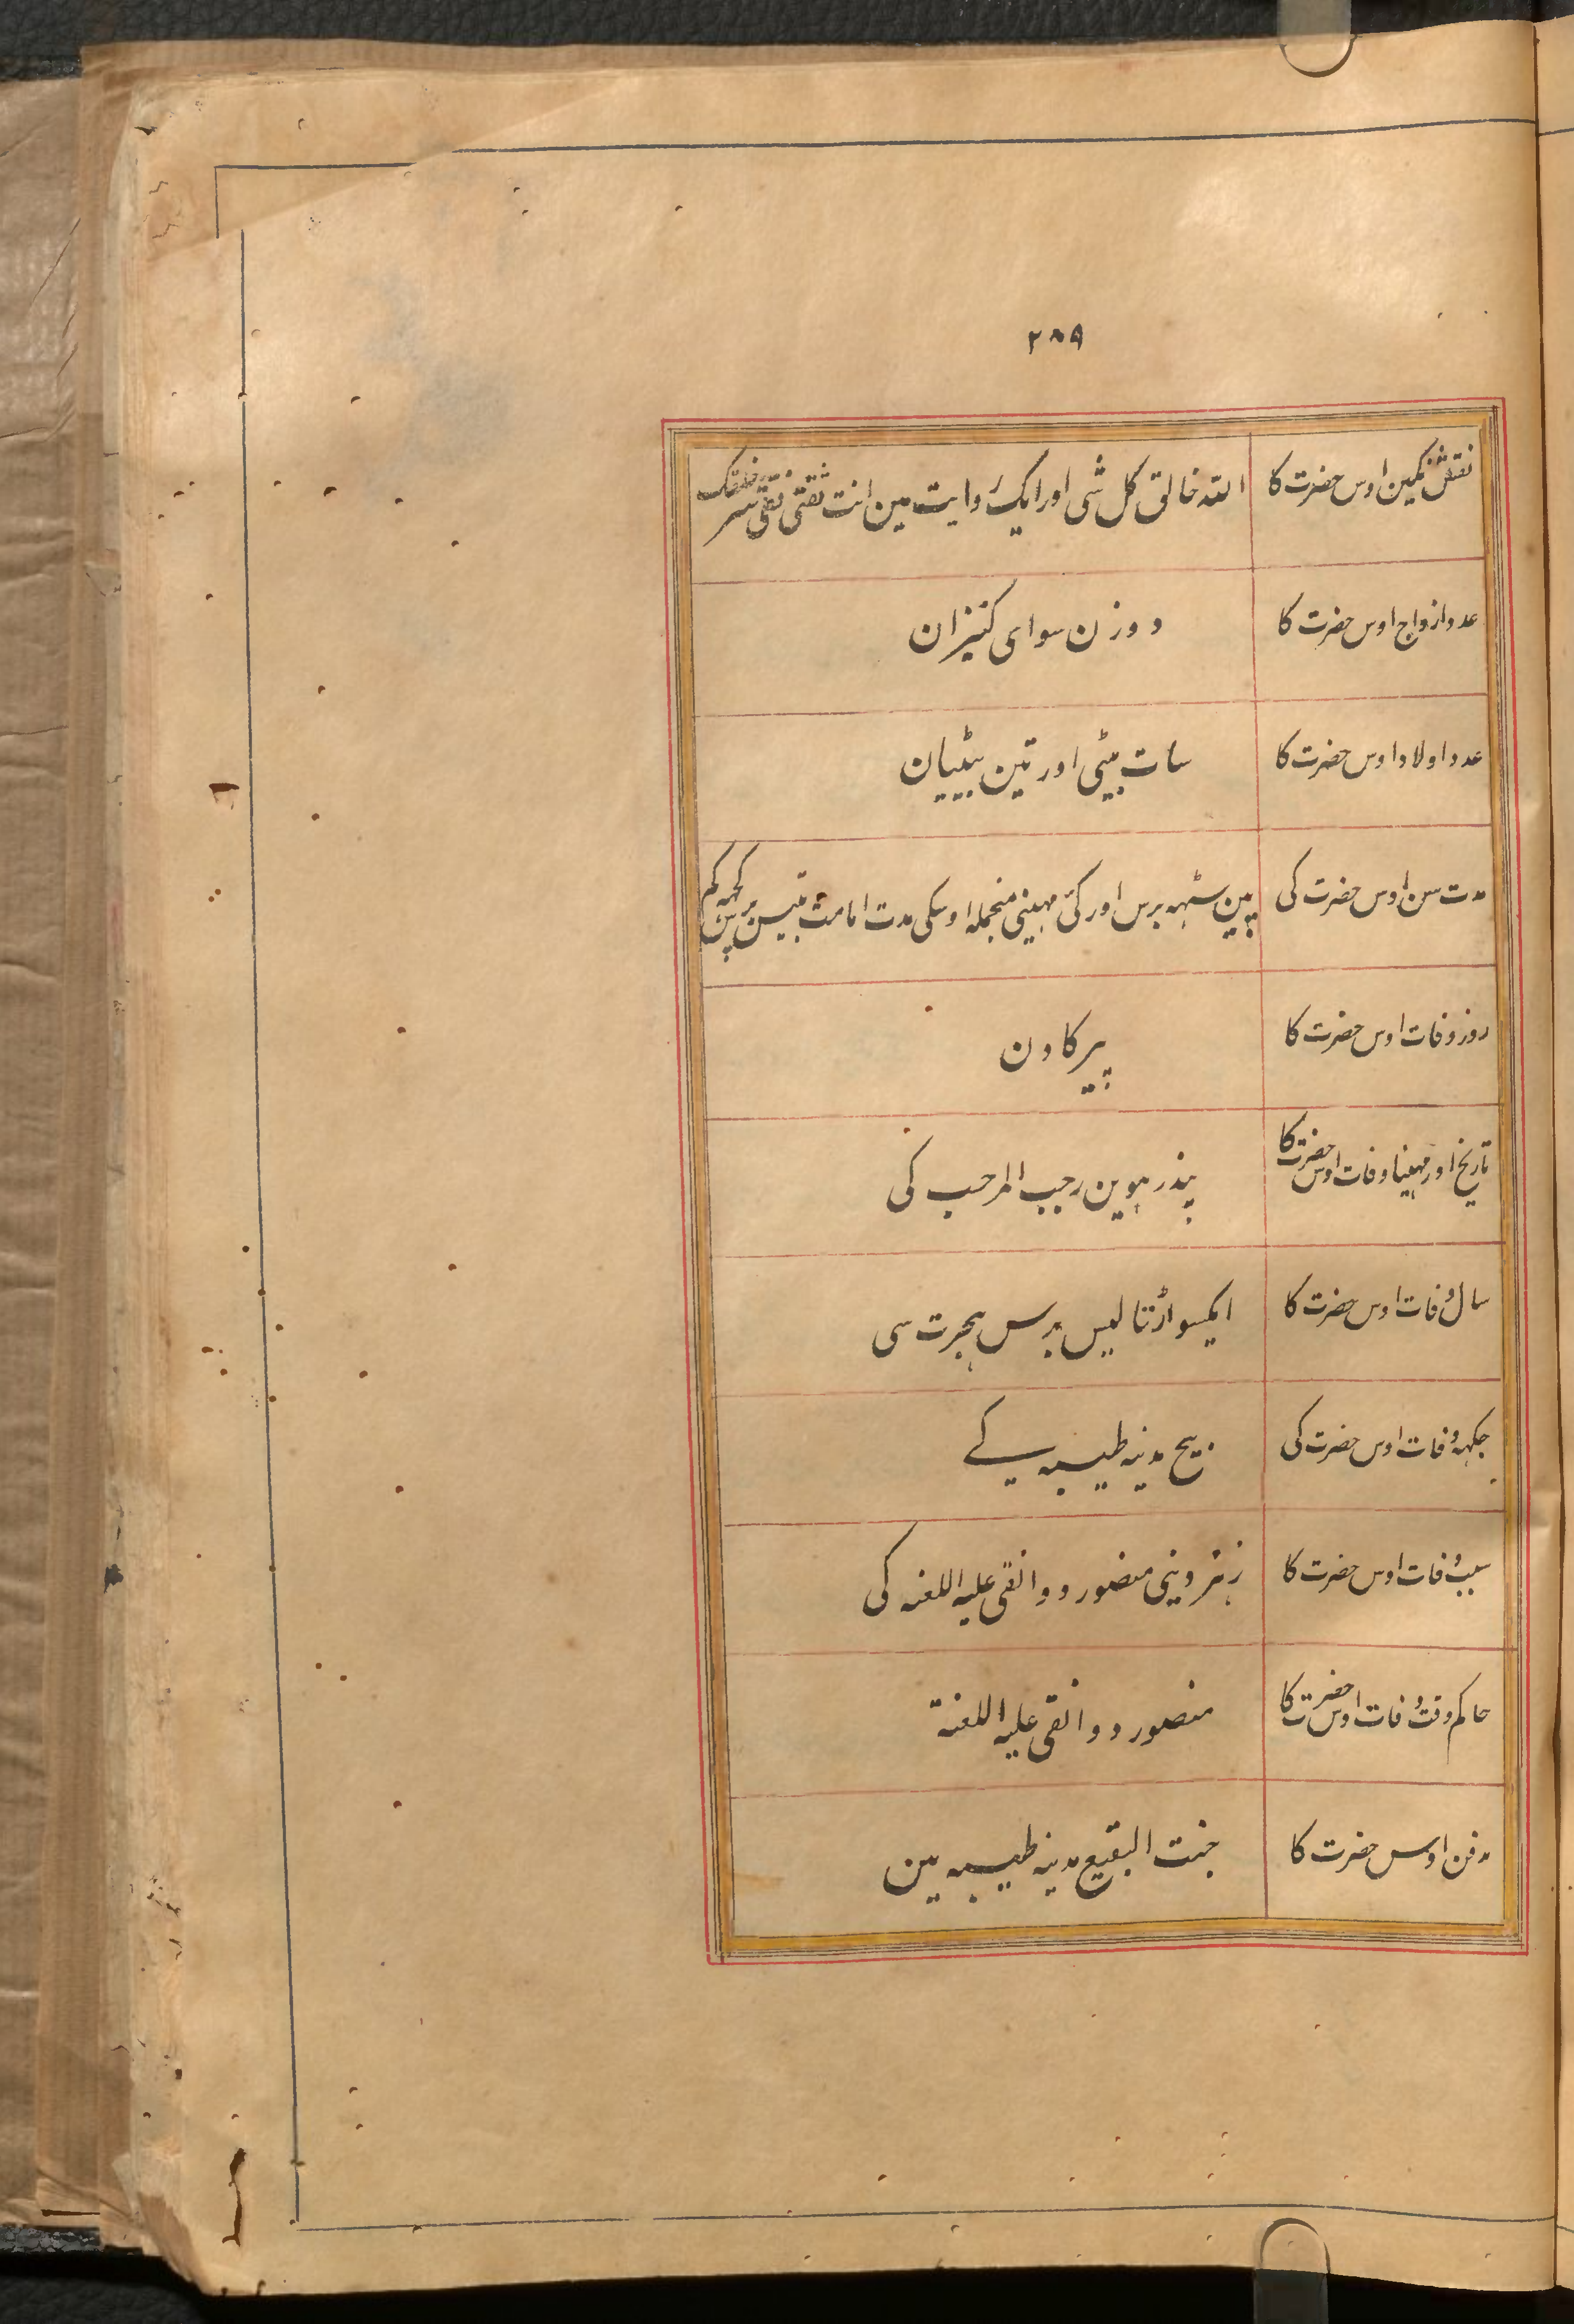 ۲۸۹
نقش نگین اوس حضرت کا اللہ خالق کل شی اور ایک روایت مین انت ثقتی فقنی شر خلقک
عدد ازواج اوس حضرت کا دو زن سوای کنیزان
عدد اولاد اوس حضرت کا سات بیٹی اور تین بیٹیان
مدت سن اوس حضرت کی پین سٹہہ برس اور کئی مہینی منجملہ اوسکی مدت امامت تیس برس کچہہ کم
روز وفات اوس حضرت کا پیر کا دن
تاریخ اور مہینا وفات اوس حضرت کا پندرہوین رجب المرجب کی
سال وفات اوس حضرت کا ایکسو اڑتالیس برس ہجرت سی
جگہہ وفات اوس حضرت کی بیچ مدینہ طیبہ کے
سبب وفات اوس حضرت کا زہر دینی منصور دوانقی علیہ اللعنہ کی
حاکم وقت وفات اوس حضرت کا منصور دوانقی علیہ اللعنة
مدفن اوس حضرت کا جنت البقیع مدینہ طیبہ مین